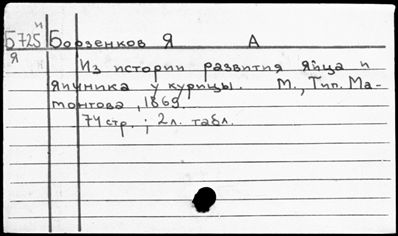 Б725 и Борзенков Я А
Я
Из истории развития яйца и
яичника у курицы. М., Тип. Ма-
монтова, 1869.
74 стр.; 2 л. табл.